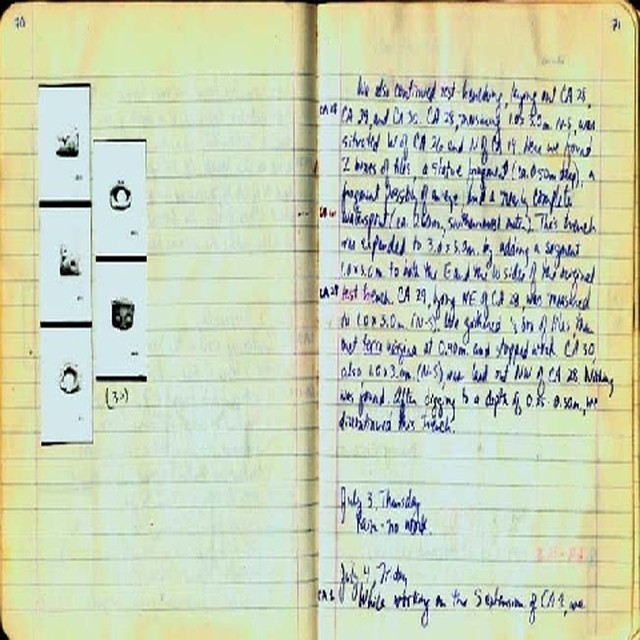 70
71
We also continued test-trenching, laying out CA 28,
CA 28
CA 29, and CA 30. CA 28, measuring 1.0 x 3.0m N-S, was
situated W of CA 26 and N of CA 19. Here we found
2 boxes of tiles, a statue fragment (ca. 0.50m deep), a
fragment possibly of and a nearly complete
waterspout (ca. 0.60m, southernmost meter). This trench
was expanded to 3.0 x 3.0m by adding a segment
1.0 x 3.0m to both the E and the W sides of the original
CA 29
test trench. CA 29, lying NE of CA 28, was measured
to 1.0 x 3.0m (N-S). We gathered ½ box of tiles then
out terra vergine at 0.40m and stopped work. CA 30,
also 1.0 x 3.0m (N-S), was laid out NW of CA 28. Nothing
was found. After digging to a depth of 0.25-0.30m, we
discontinued this trench.
(30)
July 3, Thursday
Rain - no work.
July 4, Friday
While working on the S extension of CA 2, we